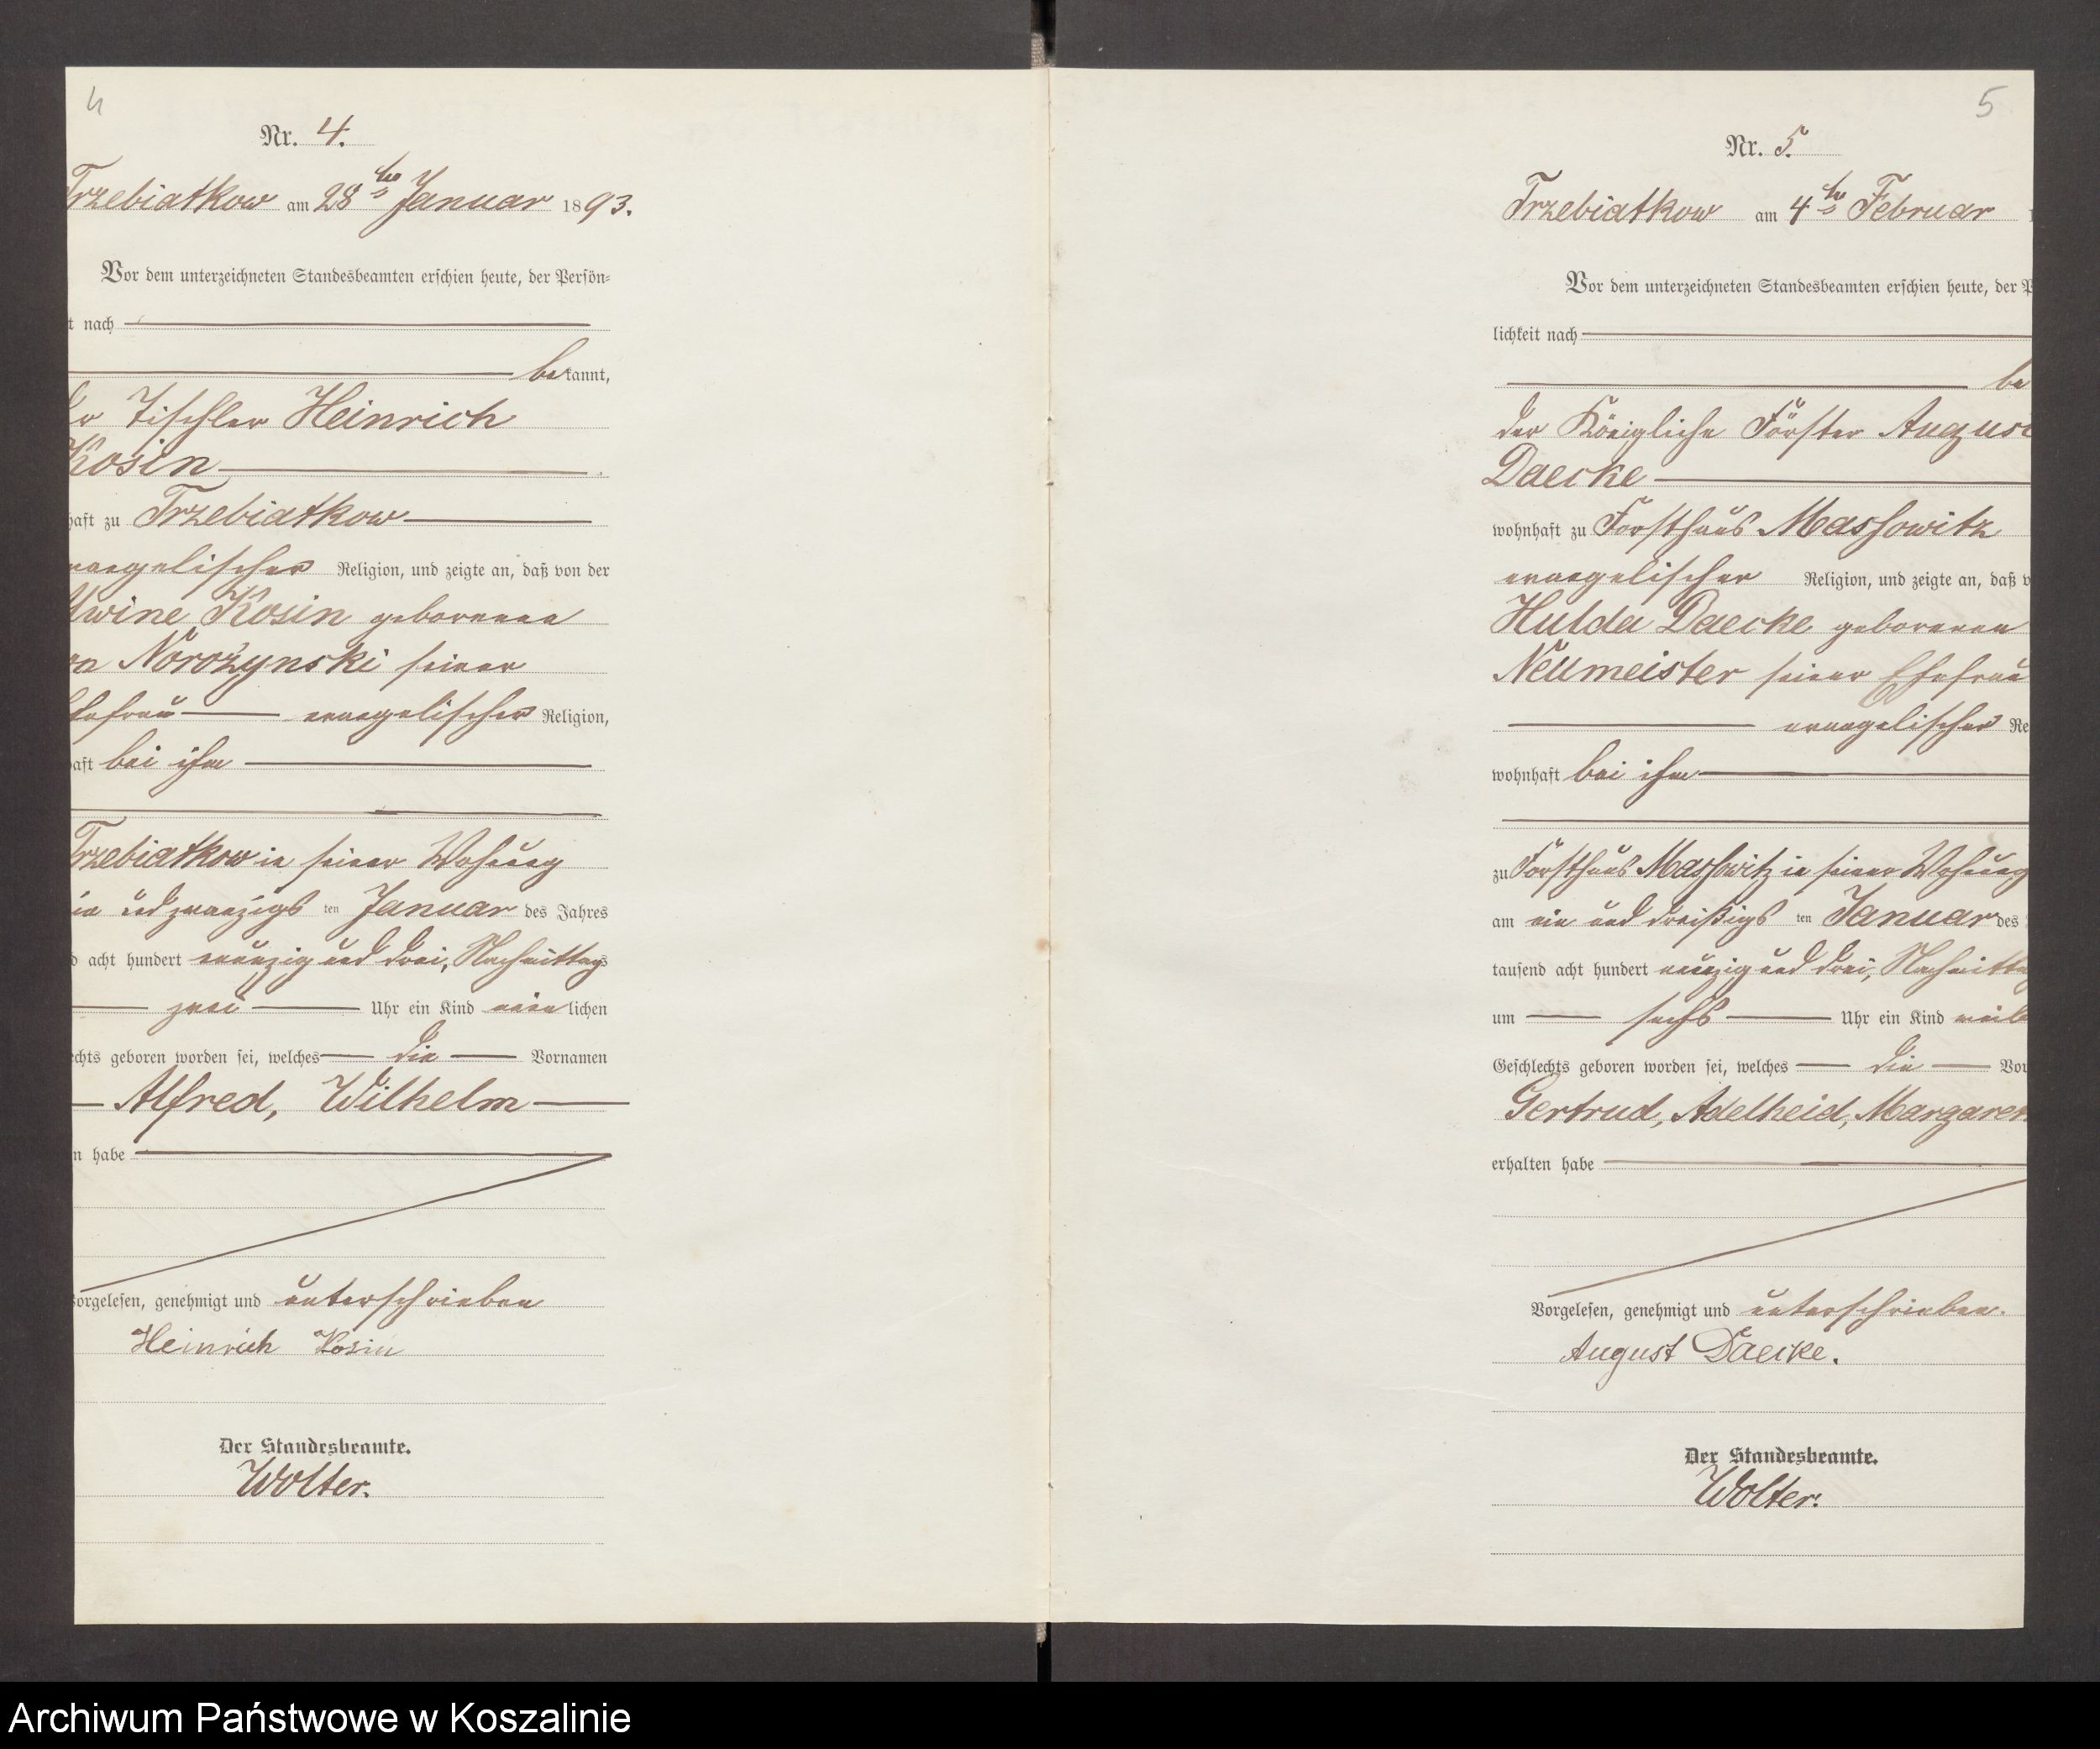 4
Nr. 4.
Trzebiatkow am 28ten Januar 1893.
Vor dem unterzeichneten Standesbeamten erschien heute, der Persön=
t nach
bekannt,
der Tischler Heinrich
Kosin
haft zu Trzebiatkow
evangelischer Religion, und zeigte an, daß von der
Alwine Kosin geborenen
Norożynski seiner
Ehefrau evangelischer Religion,
haft bei ihm
Trzebiatkow in seiner Wohnung
ein und zwanzigs ten Januar des Jahres
d acht hundert neunzig und drei, Nachmittags
zwei Uhr ein Kind männlichen
echts geboren worden sei, welches die Vornamen
Alfred, Wilhelm
n habe
Vorgelesen, genehmigt und unterschrieben
Heinrich Kosin
Der Standesbeamte.
Wolter.
5
Nr. 5.
Trzebiatkow am 4ten Februar
Vor dem unterzeichneten Standesbeamten erschien heute, der P
lichkeit nach
be
der Königliche Förster August
Daecke
wohnhaft zu Forsthaus Massowitz
evangelischer Religion, und zeigte an, daß v
Hulda Daecke geborenen
Neumeister seiner Ehefrau
evangelischer Re
wohnhaft bei ihm
zu Forsthaus Massowitz in seiner Wohnung
am ein und dreißigs ten Januar des
tausend acht hundert neunzig und drei, Nachmittag
um sechs Uhr ein Kind weib
Geschlechts geboren worden sei, welches die Vor
Gertrud, Adelheid, Margaret
erhalten habe
Vorgelesen, genehmigt und unterschrieben.
August Daecke.
Der Standesbeamte.
Wolter.
Archiwum Państwowe w Koszalinie